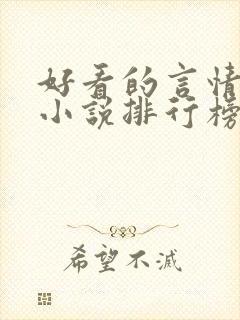 好看的言情
小说排行榜
希望不滅